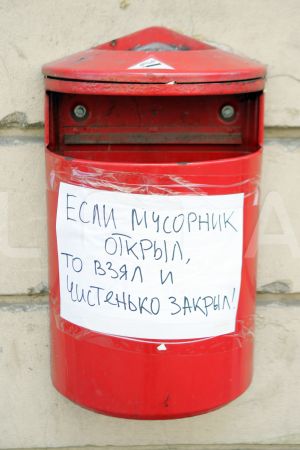 ЕСЛИ МУСОРНИК
ОТКРЫЛ,
ТО ВЗЯЛ И
ЧИСТЕНЬКО ЗАКРЫЛ!